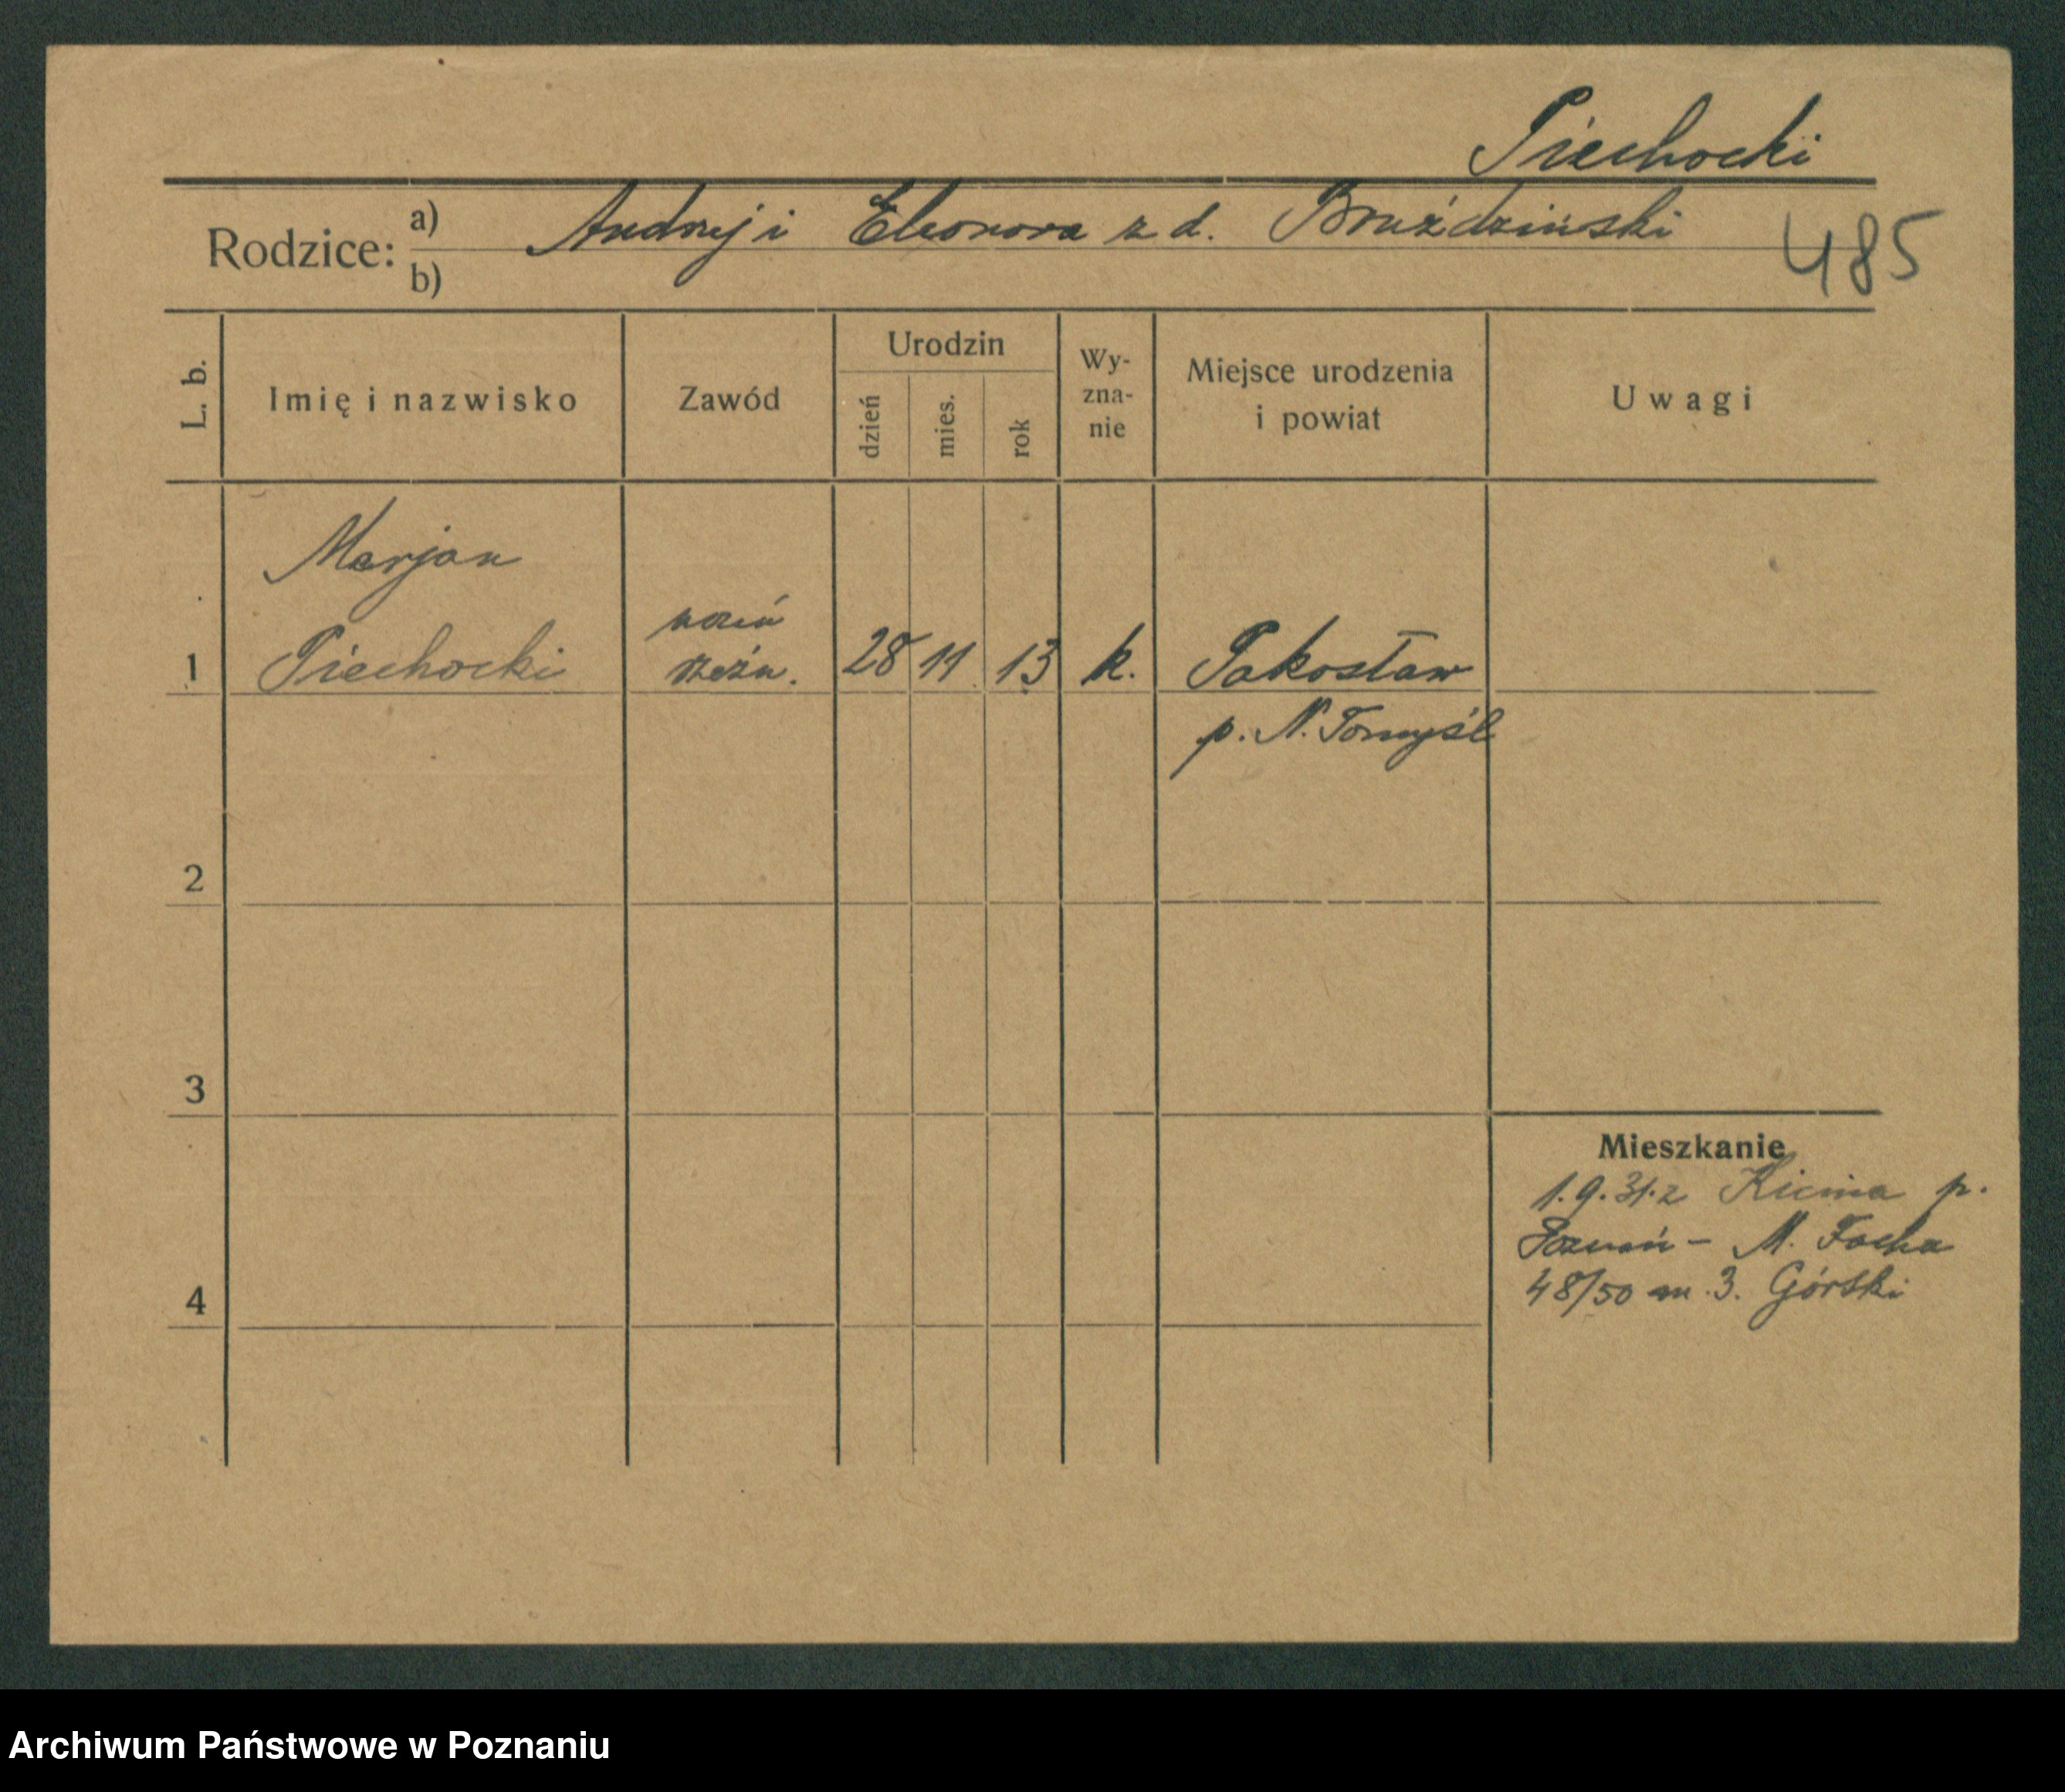 Piechocki
Rodzice: a) Andrzej i Eleonora z d. Bruździński
b)
485
L. b.
Imię i nazwisko
Zawód
Urodzin
dzień
mies.
rok
Wy-
zna-
nie
Miejsce urodzenia
i powiat
Uwagi
Marjan
uczeń
1 Piechocki rzeźn. 28 11 13 k. Pakosław
p. N. Tomyśl
2
3
4
Mieszkanie
1.9.31. z Kicina p.
Poznań - M. Focha
48/50 m. 3. Górski
Archiwum Państwowe w Poznaniu